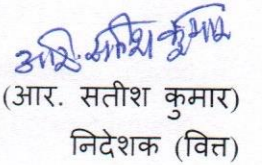 आर. सतीश कुमार
(आर. सतीश कुमार)
निदेशक (वित्त)